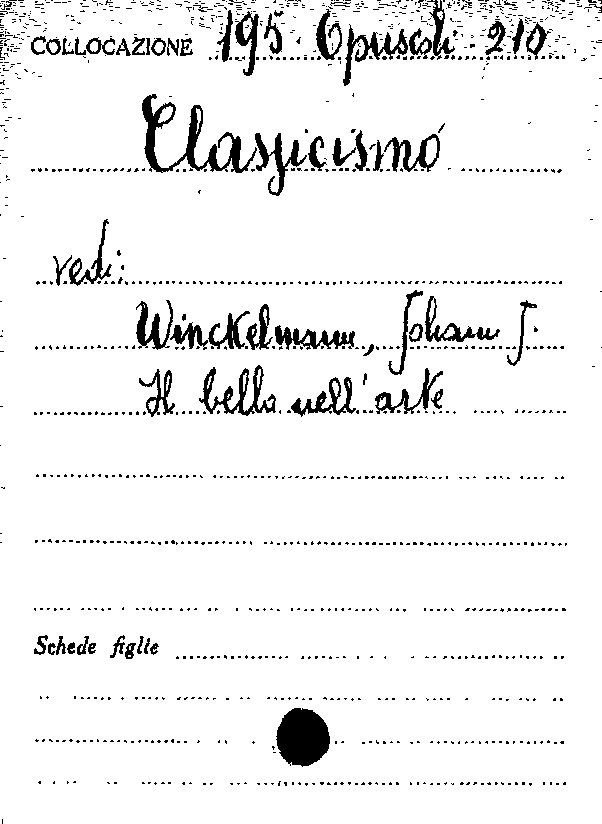 COLLOCAZIONE 195. Opuscoli. 210
Classicismo
vedi:
Winckelmann, Johann J.
Il bello nell'arte
Schede figlie